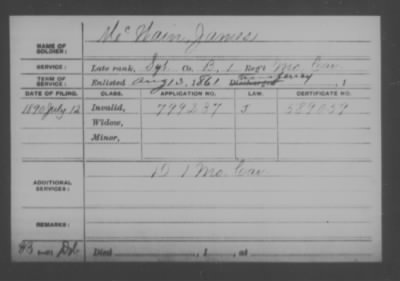 NAME OF SOLDIER: McNain, James
SERVICE: Late rank, Sgt. Co. B, 1 Reg't Mo. Cav.
TERM OF SERVICE: Enlisted Aug 3, 1861 Discharged , 1
DATE OF FILING. CLASS. APPLICATION NO. LAW. CERTIFICATE NO.
1890 July 12 Invalid, 799237 J 589039
Widow,
Minor,
ADDITIONAL SERVICES: D 1 Mo. Cav
REMARKS:
Died , 1 , at